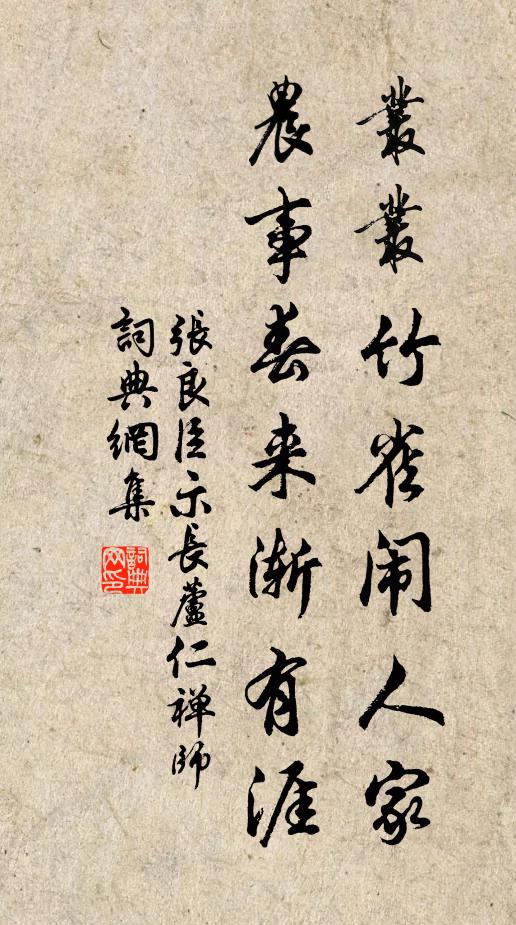 叢叢竹雀闹人家
農事春来漸有涯
張良臣示長蘆仁禅師
詞典網集
詞典网印